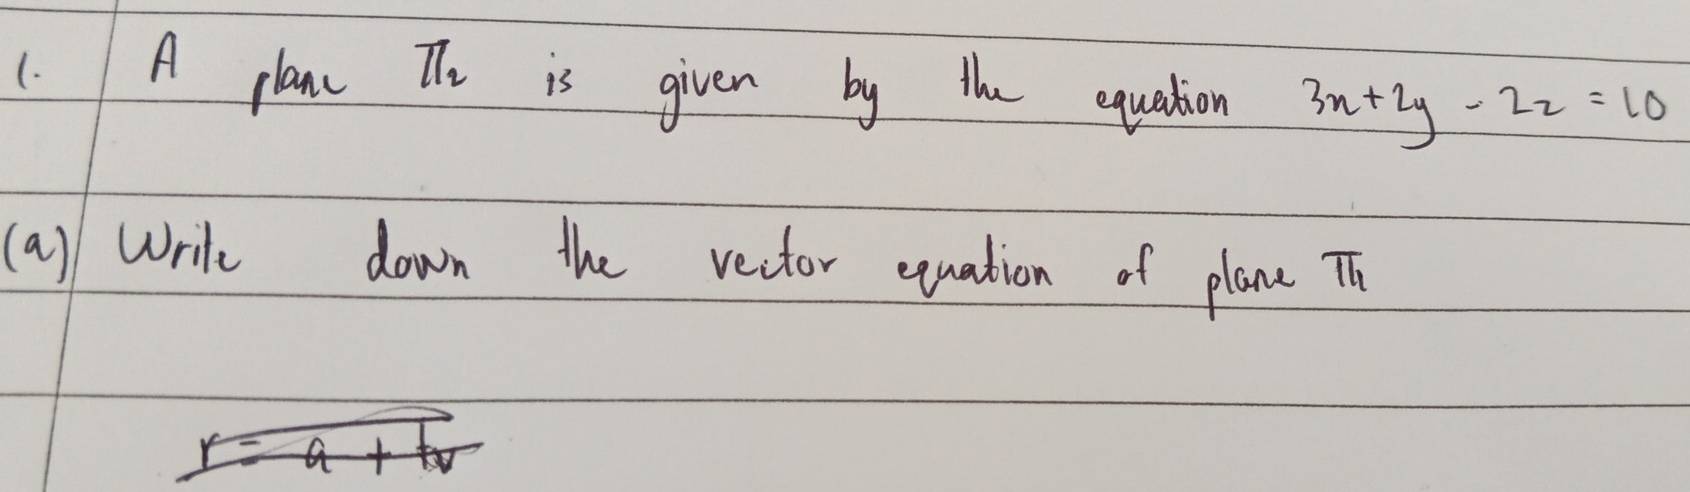 1. A plane π₂ is given by the equation 3x+2y - 2z = 10
(a) Write down the vector equation of plane π₁
r = a + tv